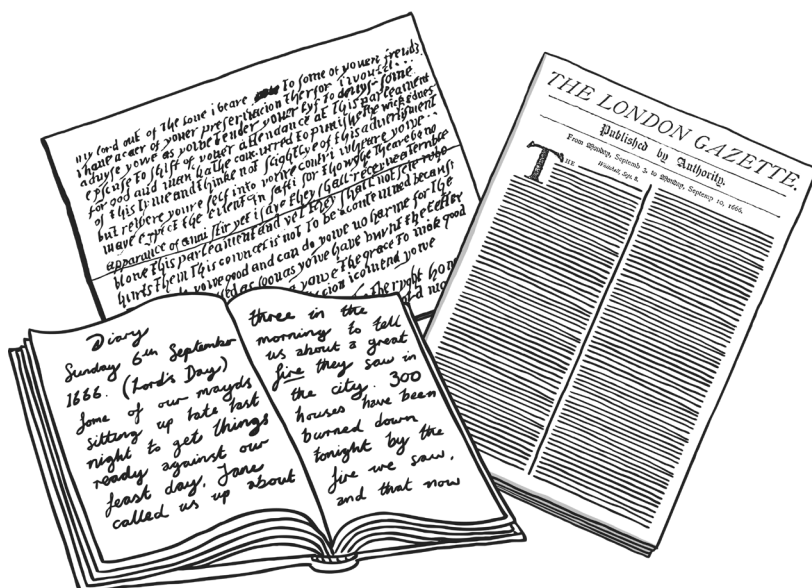 my lord out of the loue i beare To some of youer frends
i haue a caer of youer preseruacion therfor i would
aduyse yowe as yowe tender youer lyf To deuys some
epscuse To shift of youer attendance at This parleament
for god and man hathe concurred to punishe the wickednes
of this tyme and thinke not slightlye of this advertisment
but retiere youre self into youre contri wheare yowe
maye expect the event in safti for thowghe theare be no
apparance of anni stir yet i saye they shall receiue a terrible
blowe This parleament and yet They shall not see who
hurts them This councel is not To be acontemned because
yowe good and can do yowe no harme for the
as soon as yowe have burnt the letter
yowe the grace to mak good
cion i comend yowe
the right hono
THE LONDON GAZETTE.
Published by Authority.
From Monday, Septemb 3, to Monday, Septemp 10, 1666.
Whitehall, Sept. 8.
THE
Diary
Sunday 6th September
1666. (Lord's Day)
Some of our mayds
sitting up late last
night to get things
ready against our
feast day, Jane
called us up about
three in the
morning to tell
us about a great
fire they saw in
the city. 300
houses have been
burned down
tonight by the
fire we saw,
and that now